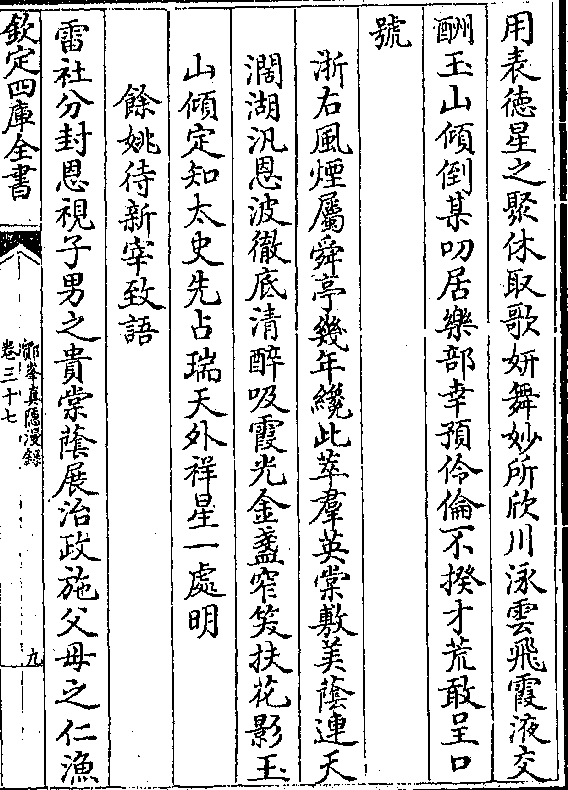 用表徳星之聚休取歌妍舞妙所欣川泳雲飛霞液交
酬玉山傾倒某叨居樂部幸預伶倫不揆才荒敢呈口
號
浙右風煙屬舜亭幾年纔此萃羣英棠敷美蔭連天
濶湖汎恩波徹底清醉吸霞光金盞窄笑扶花影玉
山傾定知太史先占瑞天外祥星一處明
餘姚待新宰致語
雷社分封恩視子男之貴棠蔭展治政施父母之仁漁
欽定四庫全書
鄮峯真隱漫録
卷三十七
九